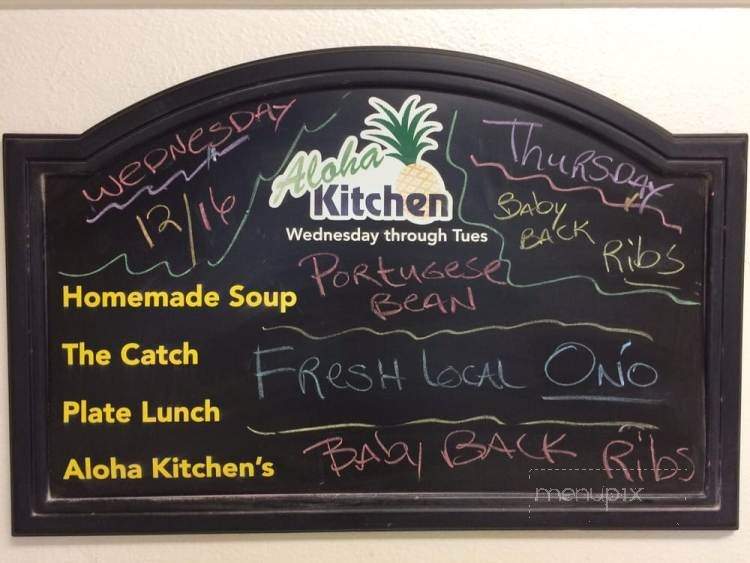 WEDNESDAY
12/16
Aloha
Kitchen
Wednesday through Tues
THURSDAY
BABY
BACK
RibS
Homemade Soup
PORTUGESE
BEAN
The Catch
FRESH LOCAL ONO
Plate Lunch
Aloha Kitchen's
BABY BACK RibS
menupix